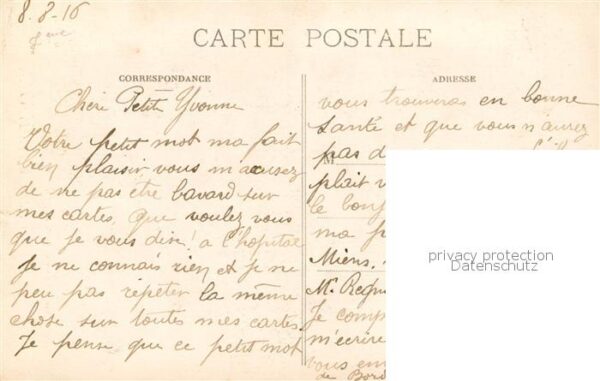 8.8-16
CARTE POSTALE
CORRESPONDANCE
ADRESSE
Chère Petite Yvonne
Votre petit mot ma fait
bien plaisir vous m'accusez
de ne pas être bavard sur
mes cartes. que voulez vous
que je vous dire! a l'hopital
je ne connais rien et je ne
peu pas repeter la même
chose sur toutes mes cartes.
Je pense que ce petit mot
vous trouveras en bonne
santé et que vous n'aurez
pas d
M
plait v
le
ma
Miens.
Mr
Je comp
m'ecrire
vous en
de Bord
privacy protection
Datenschutz